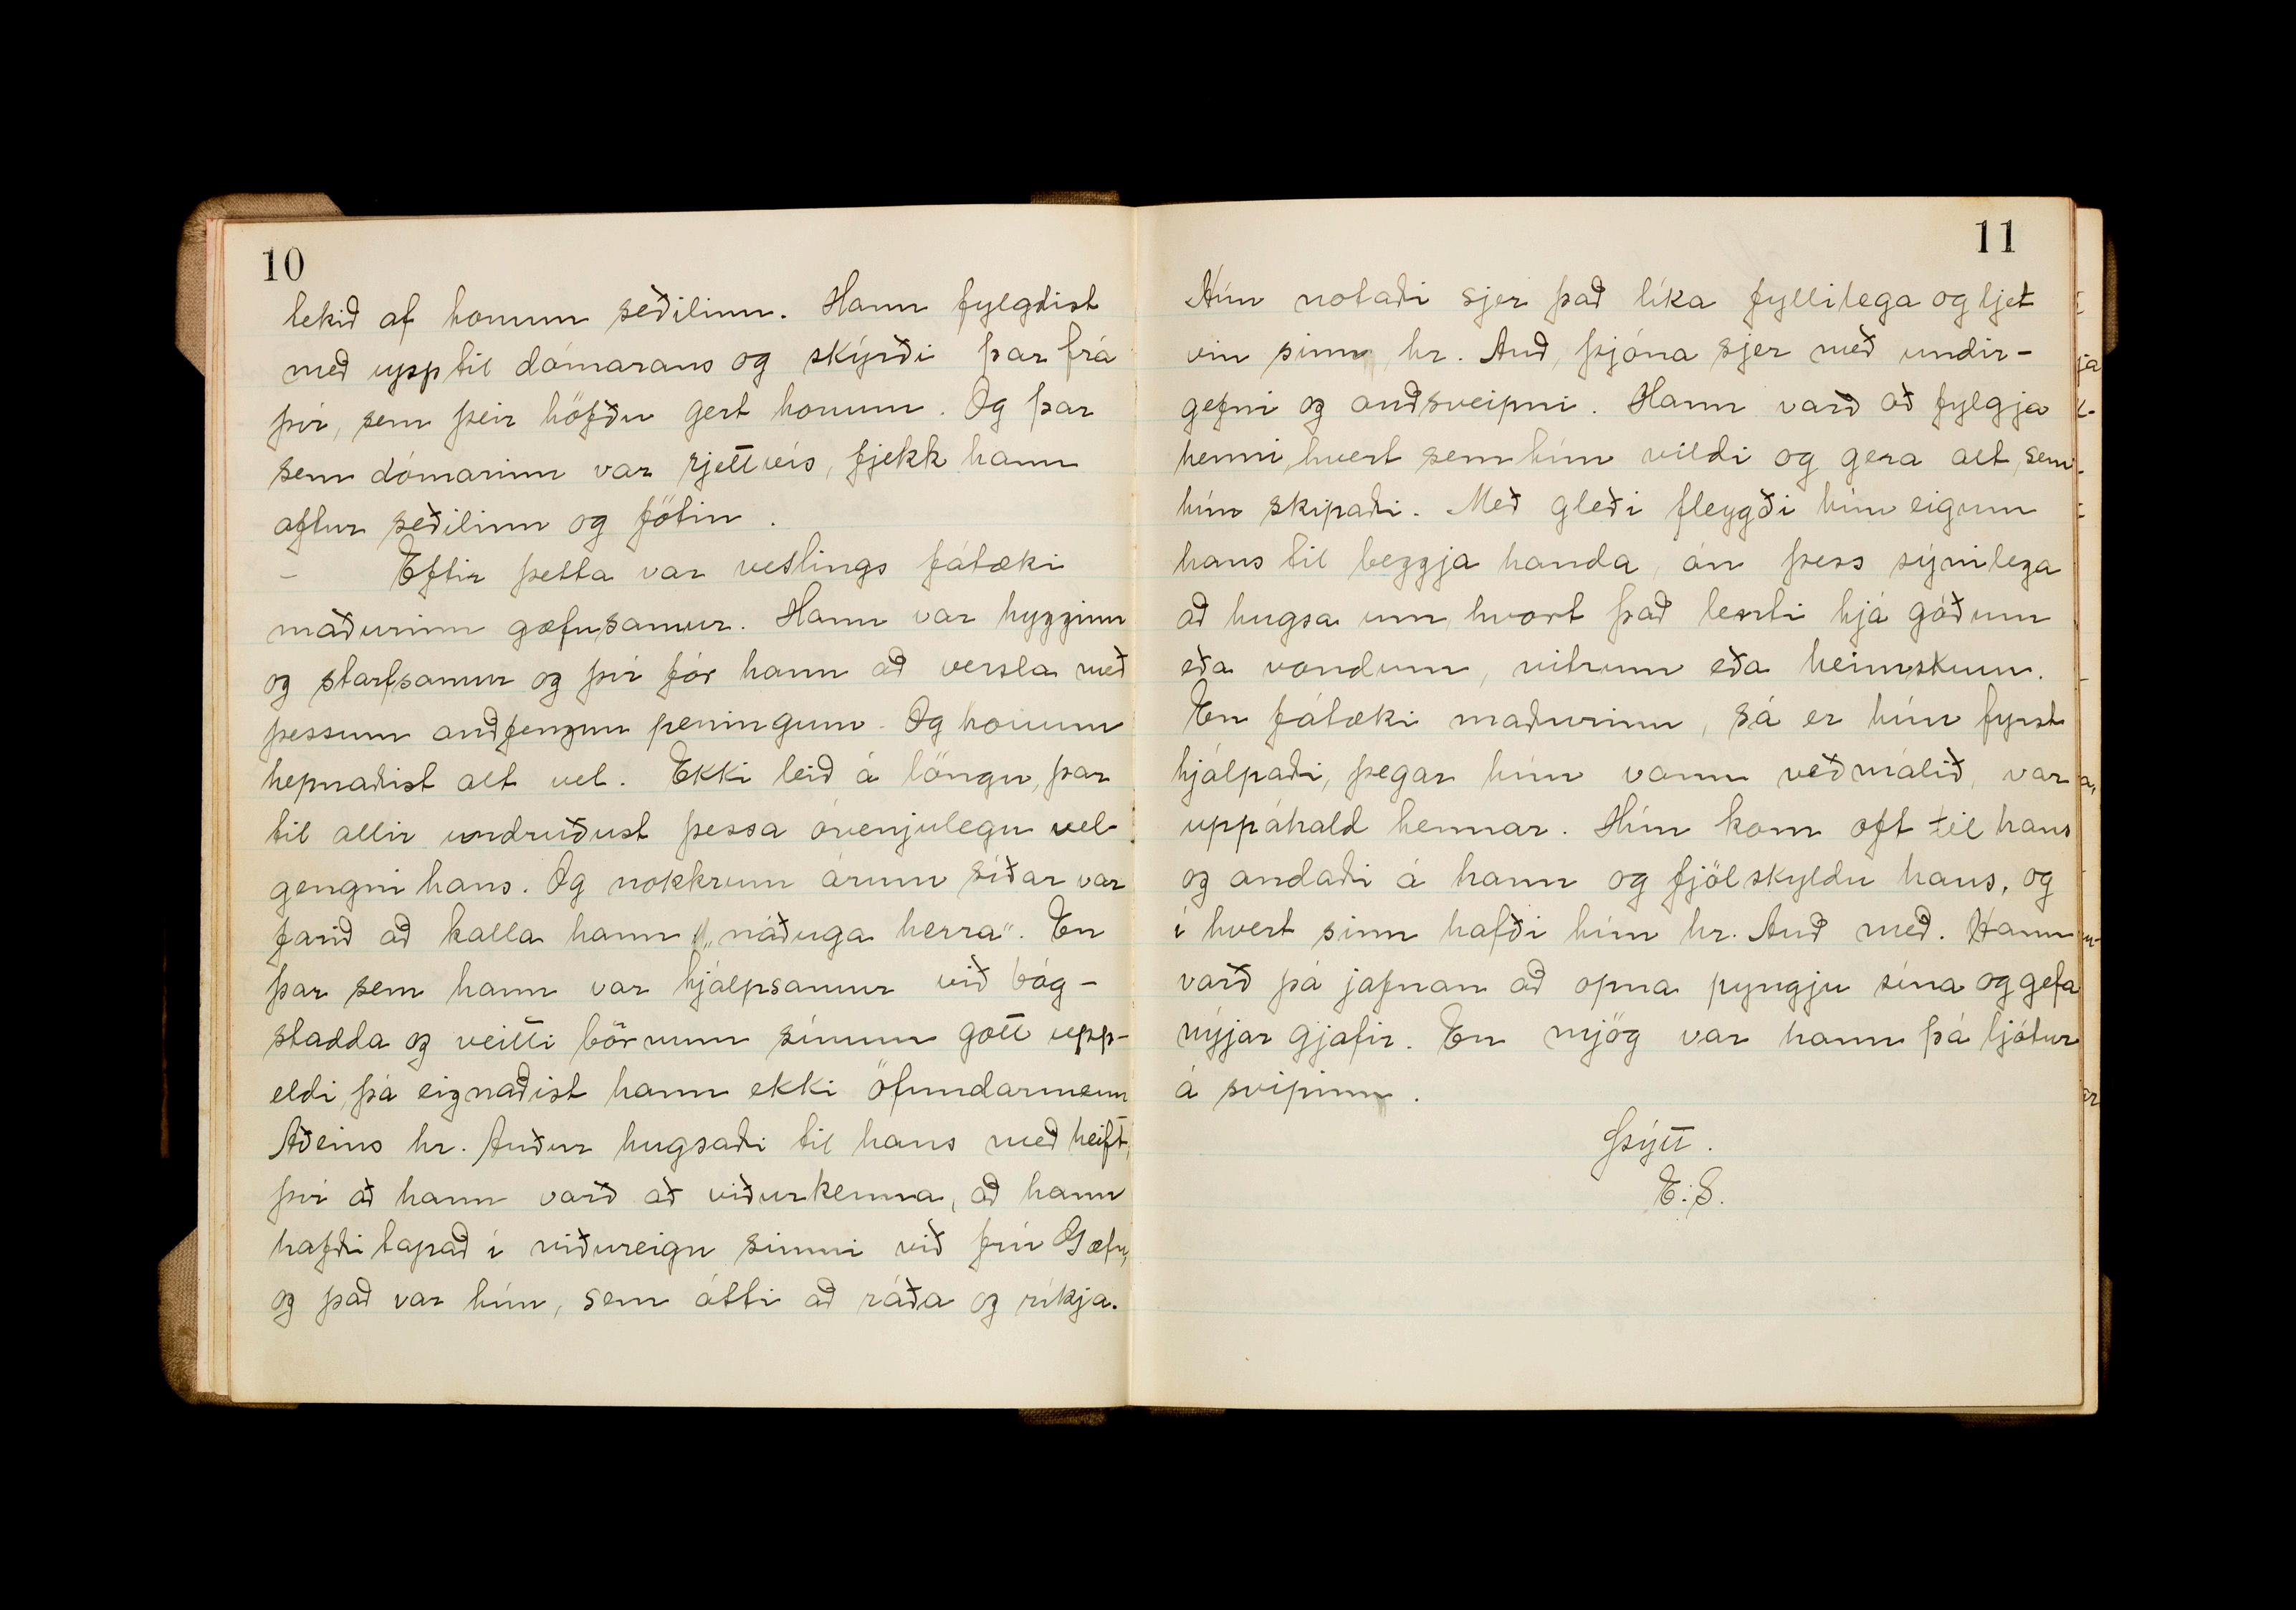 10
tekið af honum seðilinn. Hann fylgdist
með upp til dómarans og skýrði þar frá
því, sem þeir höfðu gert honum. Og þar
sem dómarinn var rjettvís, fjekk hann
aftur seðilinn og fötin.
– Eftir þetta var veslings fátæki
maðurinn gæfusamur. Hann var hygginn
og starfsamur og því fór hann að versla með
þessum auðfengnu peningum. Og honum
hepnaðist alt vel. Ekki leið á löngu, þar
til allir undruðust þessa óvenjulegu vel-
gengni hans. Og nokkrum árum síðar var
farið að kalla hann „náðuga herra“. En
þar sem hann var hjálpsamur við bág-
stadda og veitti börnum sínum gott upp-
eldi, þá eignaðist hann ekki öfundarmenn
Aðeins hr. Auður hugsaði til hans með heift,
því að hann varð að viðurkenna, að hann
hafði tapað í viðureign sinni við frú Gæfu,
og það var hún, sem átti að ráða og ríkja.
11
Hún notaði sjer það líka fyllilega og ljet
vin sinn, hr. Auð, þjóna sjer með undir-
gefni og auðsveipni. Hann varð að fylgja
henni, hvert sem hún vildi og gera alt, sem
hún skipaði. Með gleði fleygði hún eigum
hans til beggja handa, án þess sýnilega
að hugsa um, hvort það lenti hjá góðum
eða vondum, vitrum eða heimskum.
En fátæki maðurinn, sá er hún fyrst
hjálpaði, þegar hún vann veðmálið, var
uppáhald hennar. Hún kom oft til hans
og andaði á hann og fjölskyldu hans, og
í hvert sinn hafði hún hr. Auð með. Hann
varð þá jafnan að opna pyngju sína og gefa
nýjar gjafir. En mjög var hann þá ljótur
á svipinn.
Þýtt.
E. S.